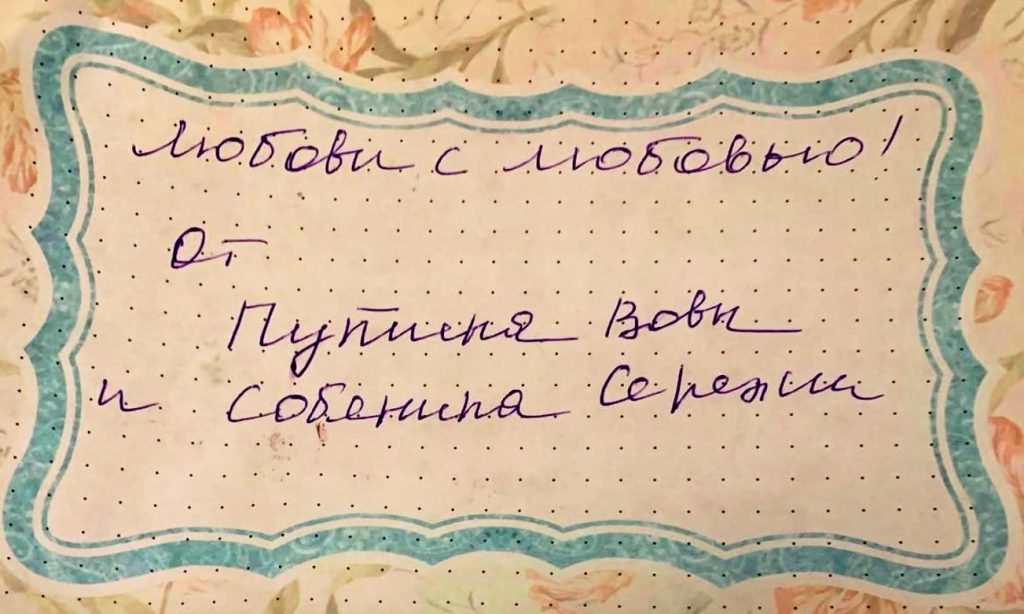 Любови с любовью!
От
Путина Вовы
и Собянина Сережи